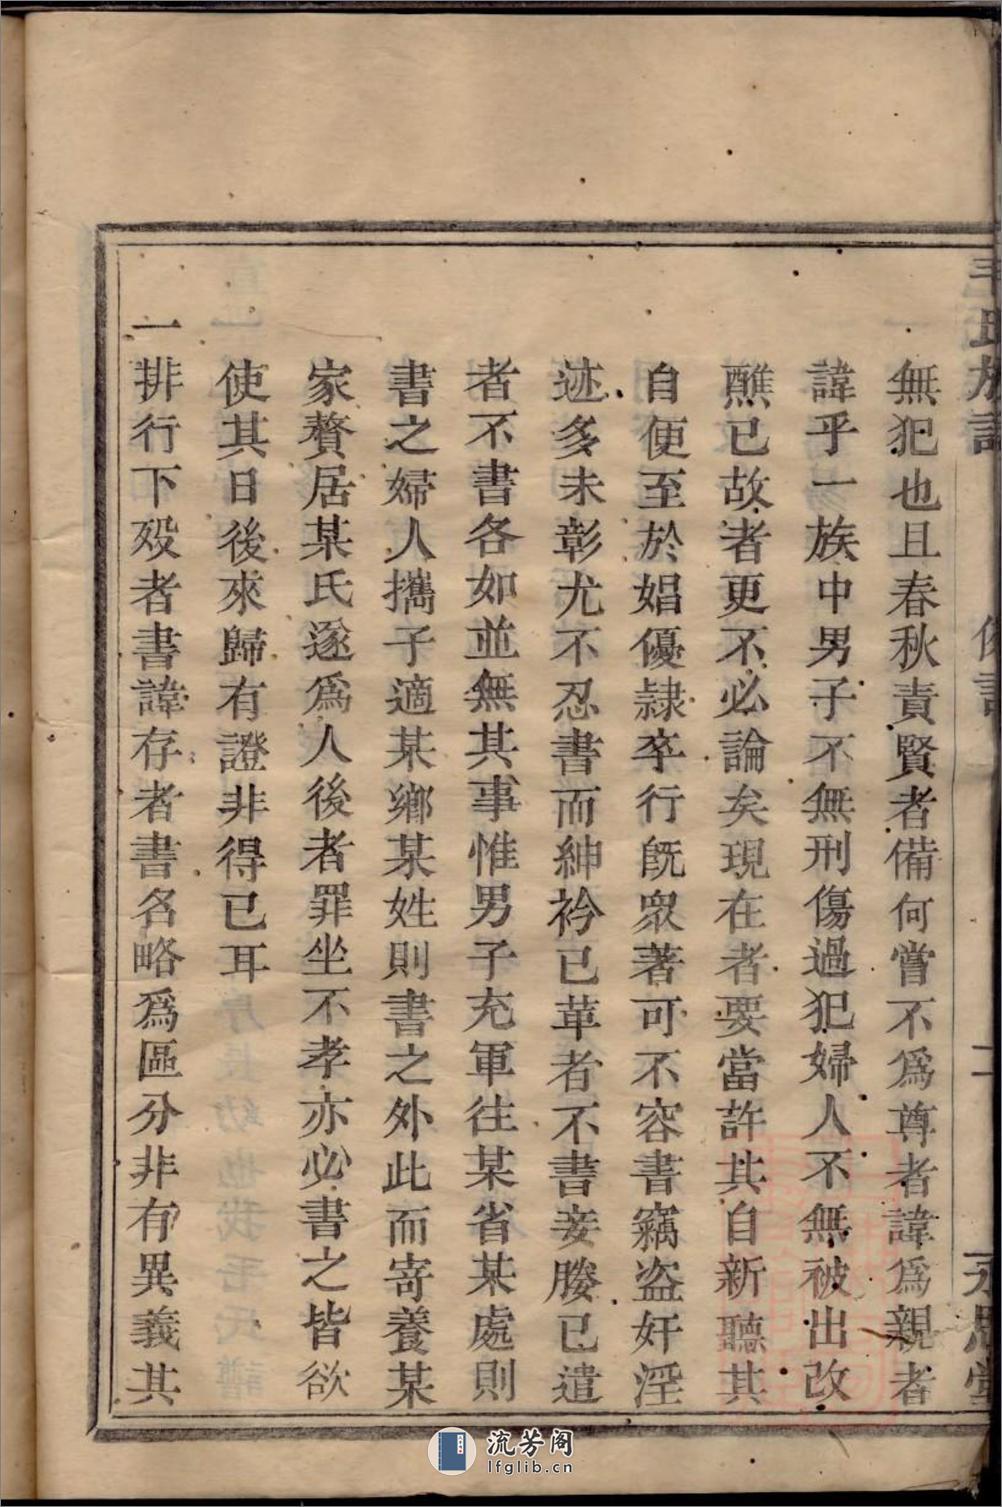 毛氏族譜
二
永思堂
無犯也且春秋責賢者備何嘗不爲尊者諱爲親者
諱乎一族中男子不無刑傷過犯婦人不無被出改
醮已故者更不必論矣現在者要當許其自新聽其
自便至於娼優隸卒行旣衆著可不容書竊盜奸淫
迹多未彰尤不忍書而紳衿已革者不書妾媵已遣
者不書各如並無其事惟男子充軍往某省某處則
書之婦人攜子適某鄉某姓則書之外此而寄養某
家贅居某氏遂爲人後者罪坐不孝亦必書之皆欲
使其日後來歸有證非得已耳
一排行下歿者書諱存者書名略爲區分非有異義其
流芳阁
lfglib.cn